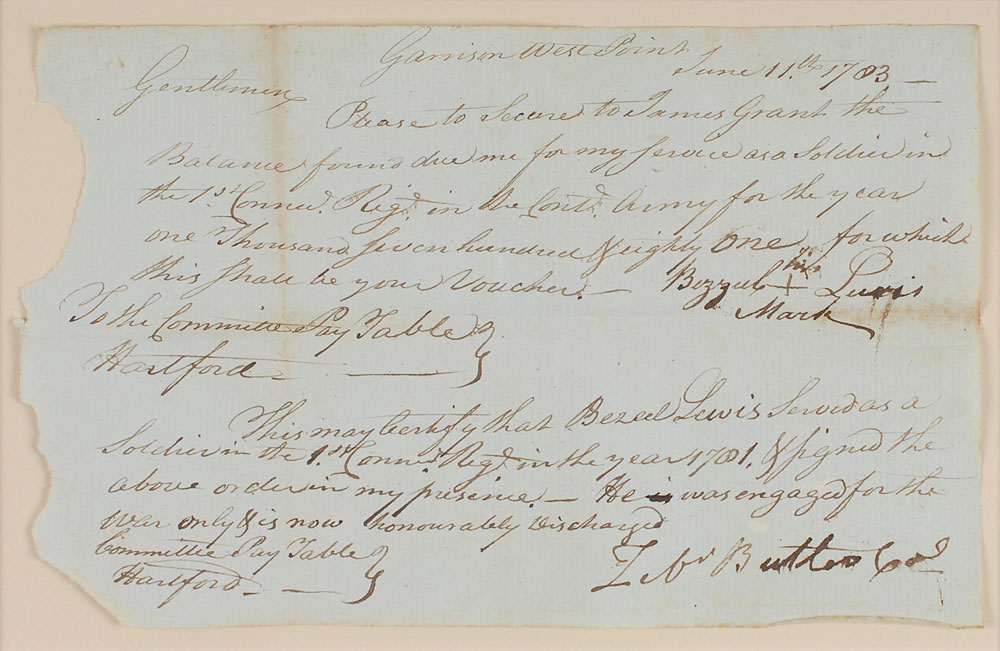 Garrison West Point
June 11.th 1783 —
Gentlemen
Please to Secure to James Grant the
Balance found due me for my service as a Soldier in
the 1.st Connec.t Reg.t in the Cont.l Army for the year
one Thousand seven hundred & eighty one, for which
this shall be your Voucher. —
Bezzeel his + Lewis
Mark
To the Committee Pay Table
Hartford —
This may Certify that Bezeel Lewis Served as a
Soldier in the 1.st Conne.t Reg.t in the year 1781, & signed the
above order in my presince — He was engaged for the
War only & is now honourably Discharged
Committee Pay Table
Hartford —
Zebn Butler Col